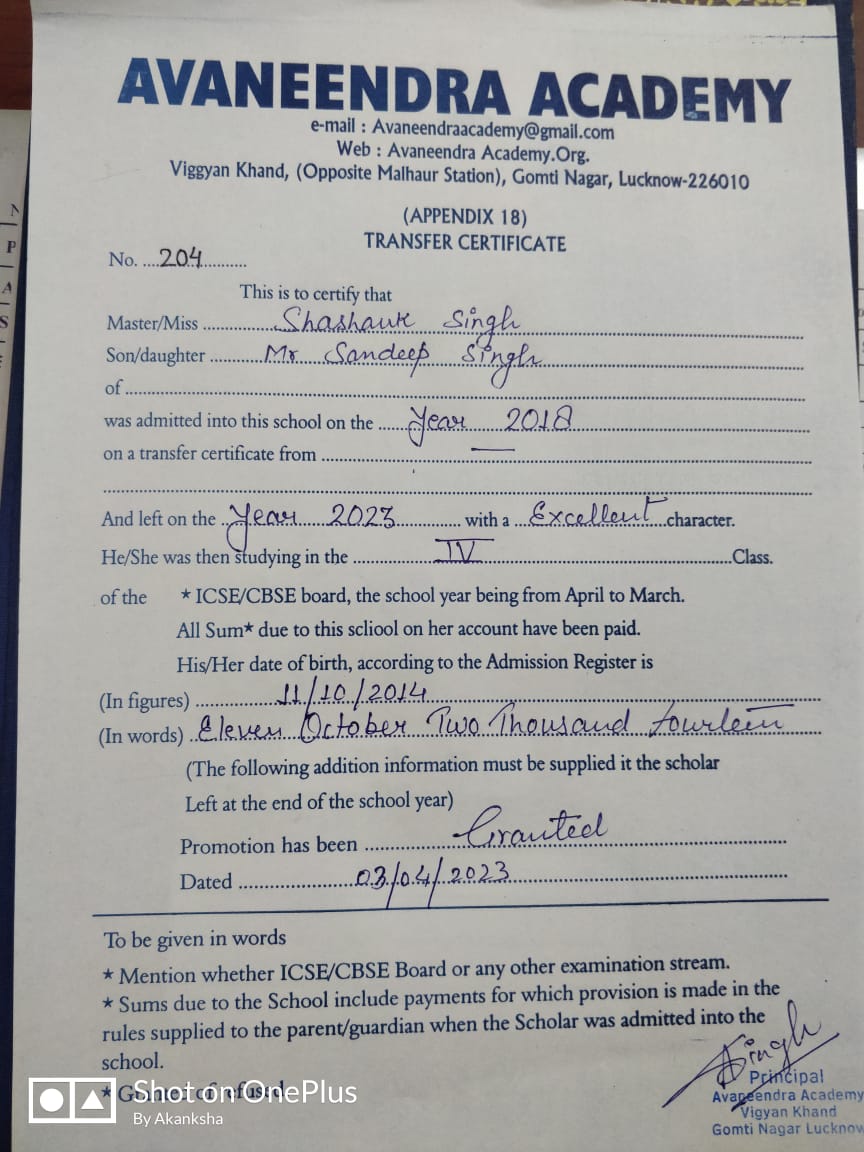 AVANEENDRA ACADEMY
e-mail : Avaneendraacademy@gmail.com
Web : Avaneendra Academy.Org.
Viggyan Khand, (Opposite Malhaur Station), Gomti Nagar, Lucknow-226010
(APPENDIX 18)
TRANSFER CERTIFICATE
No. ....204..........
This is to certify that
Master/Miss ............Shashank Singh
Son/daughter ..........Mr Sandeep Singh
of
was admitted into this school on the ......Year 2018
on a transfer certificate from .......—
And left on the ..Year 2023............ with a ...Excellent...character.
He/She was then studying in the ................IV................Class.
of the * ICSE/CBSE board, the school year being from April to March.
All Sum* due to this scliool on her account have been paid.
His/Her date of birth, according to the Admission Register is
(In figures) ................11/10/2014
(In words) ..Eleven October Two Thousand fourteen
(The following addition information must be supplied it the scholar
Left at the end of the school year)
Promotion has been ................Granted
Dated ......................03/04/2023
To be given in words
* Mention whether ICSE/CBSE Board or any other examination stream.
* Sums due to the School include payments for which provision is made in the
rules supplied to the parent/guardian when the Scholar was admitted into the
school.
* of refused
Singh
Principal
Avaneendra Academy
Vigyan Khand
Gomti Nagar Lucknow
Shot on OnePlus
By Akanksha